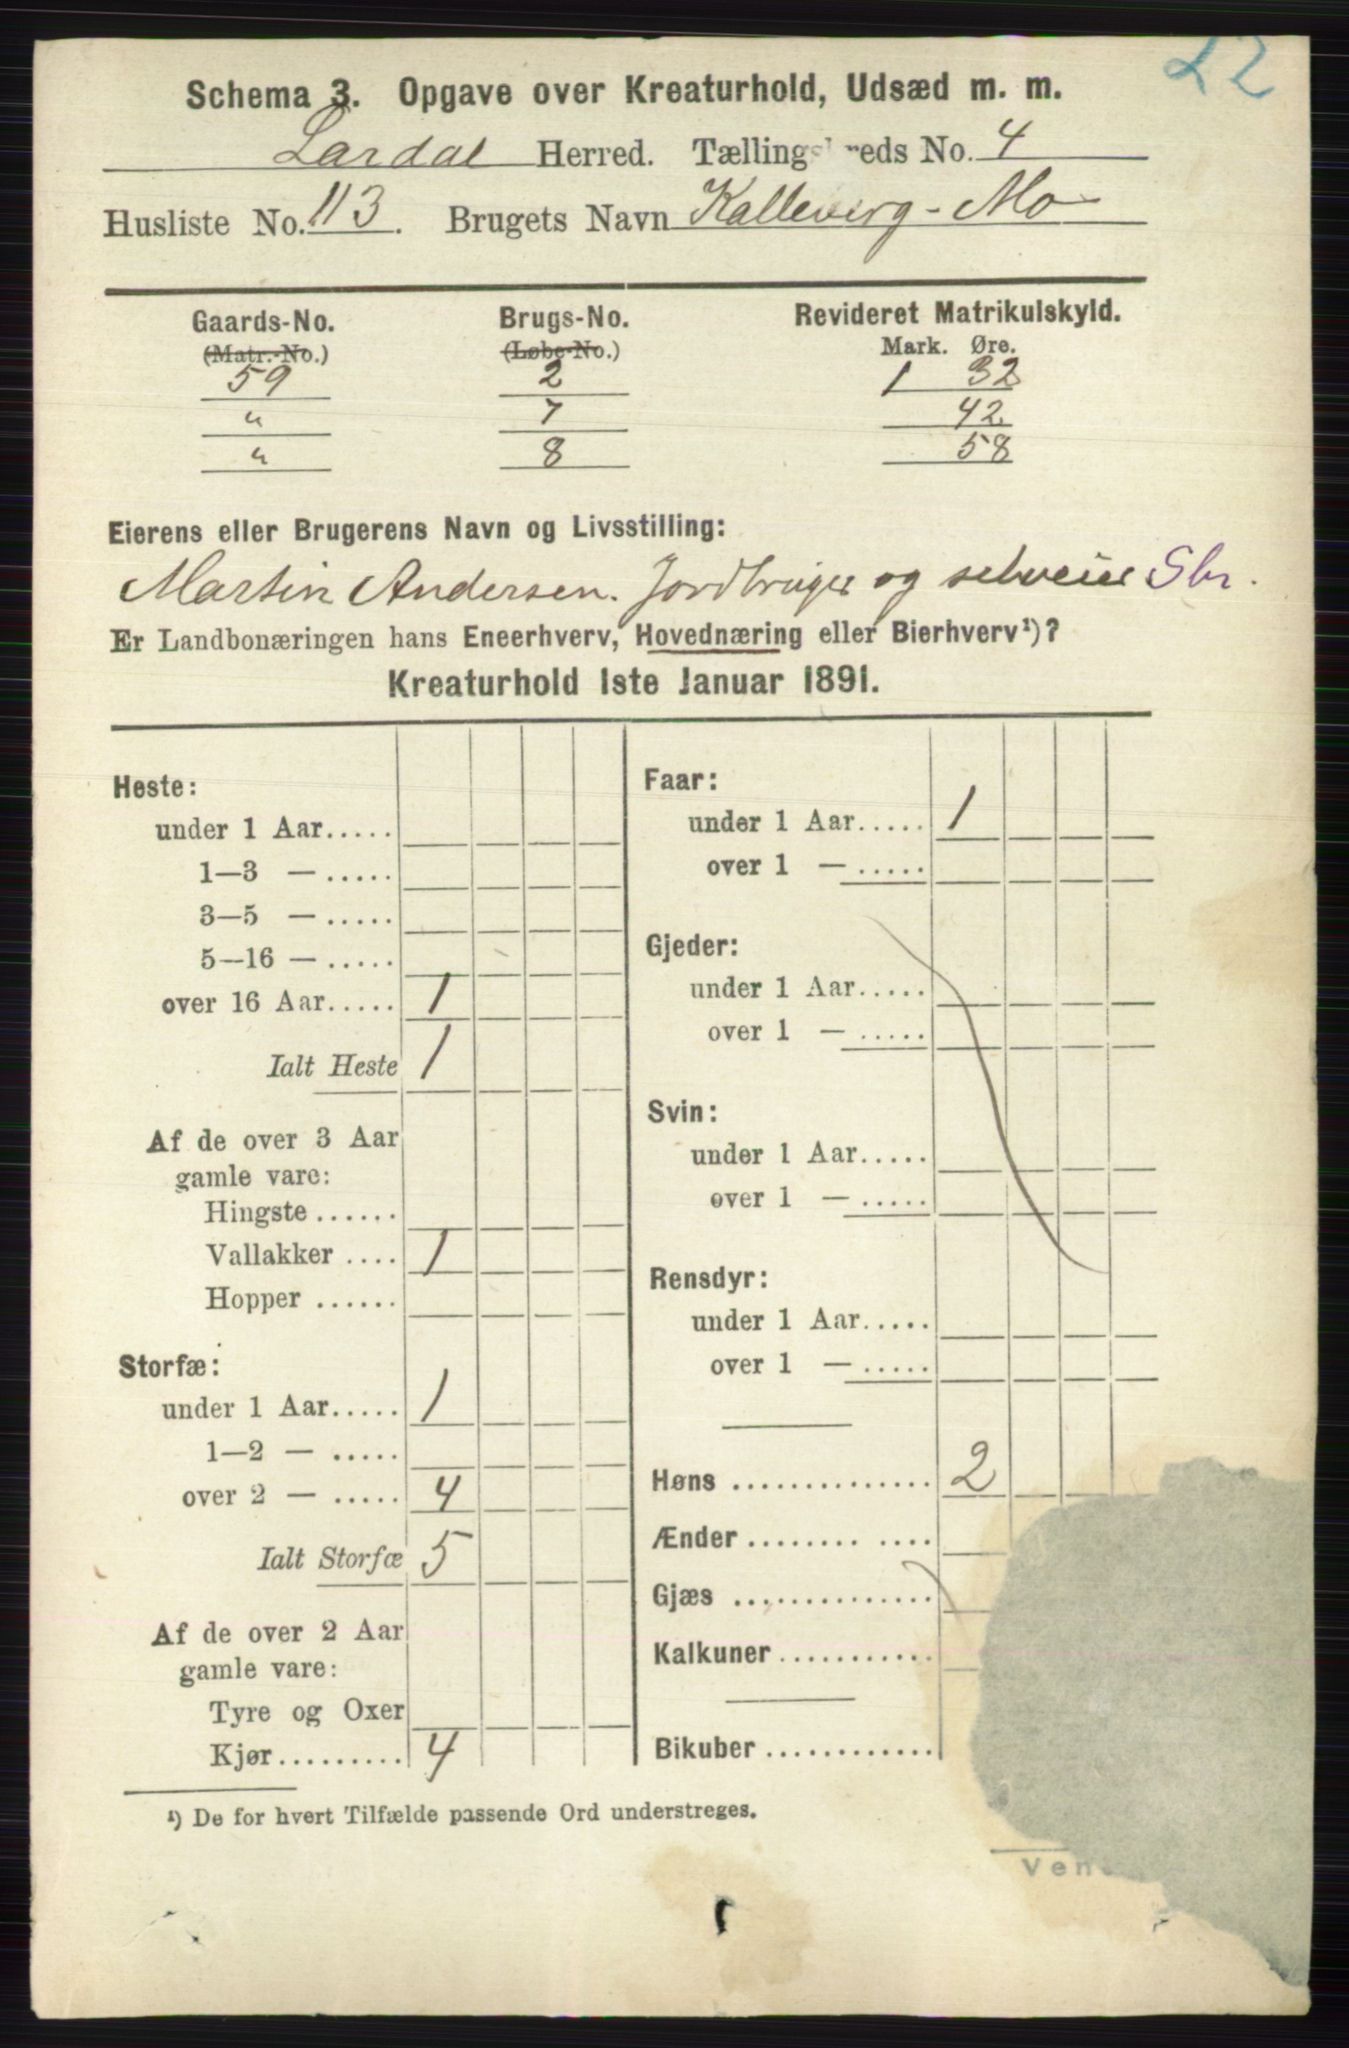 22
Schema 3. Opgave over Kreaturhold, Udsæd m. m.
Lardal Herred. Tællingskreds No. 4
Husliste No. 113. Brugets Navn Kalleberg-Mo
Gaards-No. Brugs-No. Revideret Matrikulskyld.
(Matr.-No.) (Løbe-No.) Mark. Øre.
59 2 1 32
" 7 42
" 8 58
Eierens eller Brugerens Navn og Livsstilling:
Martin Andersen. Jordbruger og selveier Sbr.
Er Landbonæringen hans Eneerhverv, Hovednæring eller Bierhverv¹)?
Kreaturhold 1ste Januar 1891.
Heste:
under 1 Aar.....
1—3 — .....
3—5 — .....
5—16 — .....
over 16 Aar..... 1
Ialt Heste 1
Af de over 3 Aar
gamle vare:
Hingste ......
Vallakker .... 1
Hopper ......
Storfæ:
under 1 Aar..... 1
1—2 — .....
over 2 — ..... 4
Ialt Storfæ 5
Af de over 2 Aar
gamle vare:
Tyre og Oxer
Kjør......... 4
Faar:
under 1 Aar..... 1
over 1 — .....
Gjeder:
under 1 Aar.....
over 1 — .....
Svin:
under 1 Aar.....
over 1 — .....
Rensdyr:
under 1 Aar.....
over 1 — .....
Høns .............. 2
Ænder ........ ....
Gjæs ..............
Kalkuner ...........
Bikuber .............
¹) De for hvert Tilfælde passende Ord understreges.
Ven